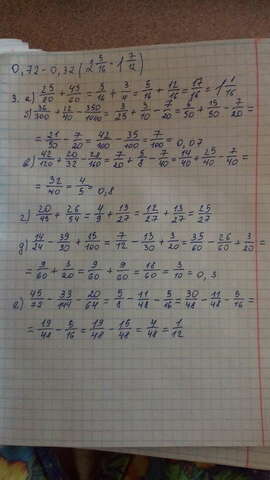 0,72-0,32(2 5/16 - 1 7/12)
3. а) 25/80 + 45/60 = 5/16 + 3/4 = 5/16 + 12/16 = 17/16 = 1 1/16
б) 36/300 + 12/40 - 350/1000 = 3/25 + 3/10 - 7/20 = 6/50 + 15/50 - 7/20 =
= 21/50 - 7/20 = 42/100 - 35/100 = 7/100 = 0,07
в) 42/120 + 20/32 - 28/160 = 7/20 + 5/8 - 7/40 = 14/40 + 25/40 - 7/40 =
= 32/40 = 4/5 = 0,8
г) 20/45 + 26/54 = 4/9 + 13/27 = 12/27 + 13/27 = 25/27
д) 14/24 - 39/90 + 15/100 = 7/12 - 13/30 + 3/20 = 35/60 - 26/60 + 3/20 =
= 9/60 + 3/20 = 9/60 + 9/60 = 18/60 = 3/10 = 0,3
е) 45/72 - 33/144 - 20/64 = 5/8 - 11/48 - 5/16 = 30/48 - 11/48 - 5/16 =
= 19/48 - 5/16 = 19/48 - 15/48 = 4/48 = 1/12